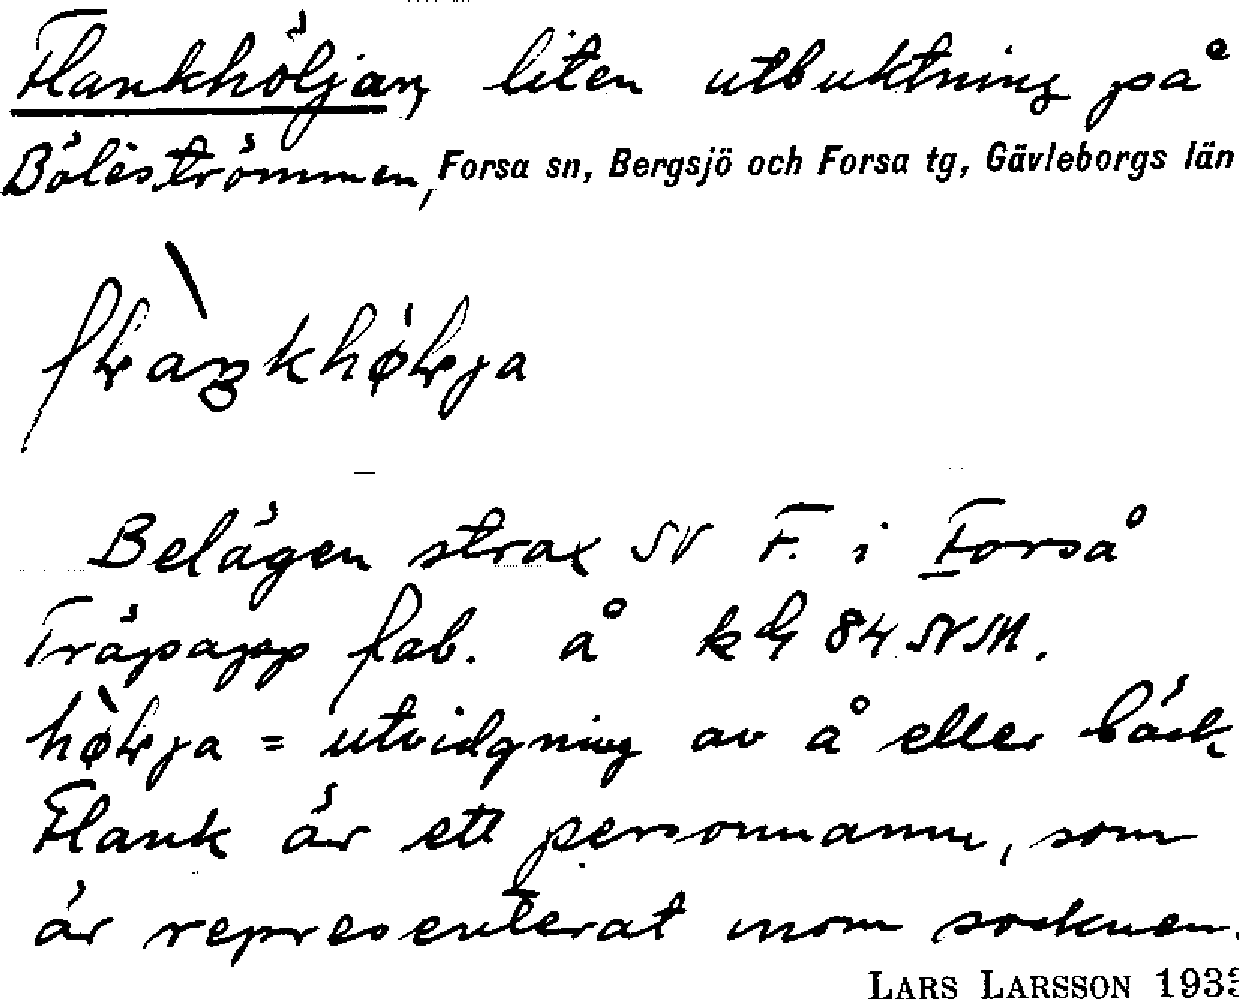 Flankhöljan, liten utbuktning på
Böleströmmen, Forsa sn, Bergsjö och Forsa tg, Gävleborgs län
Belägen strax SV F. i Forså
Träpapp fab. å kbl 84 SV SM.
= utvidgning av å eller bäck
Flank är ett personnamn, som
är representerat inom socknen.
LARS LARSSON 1933